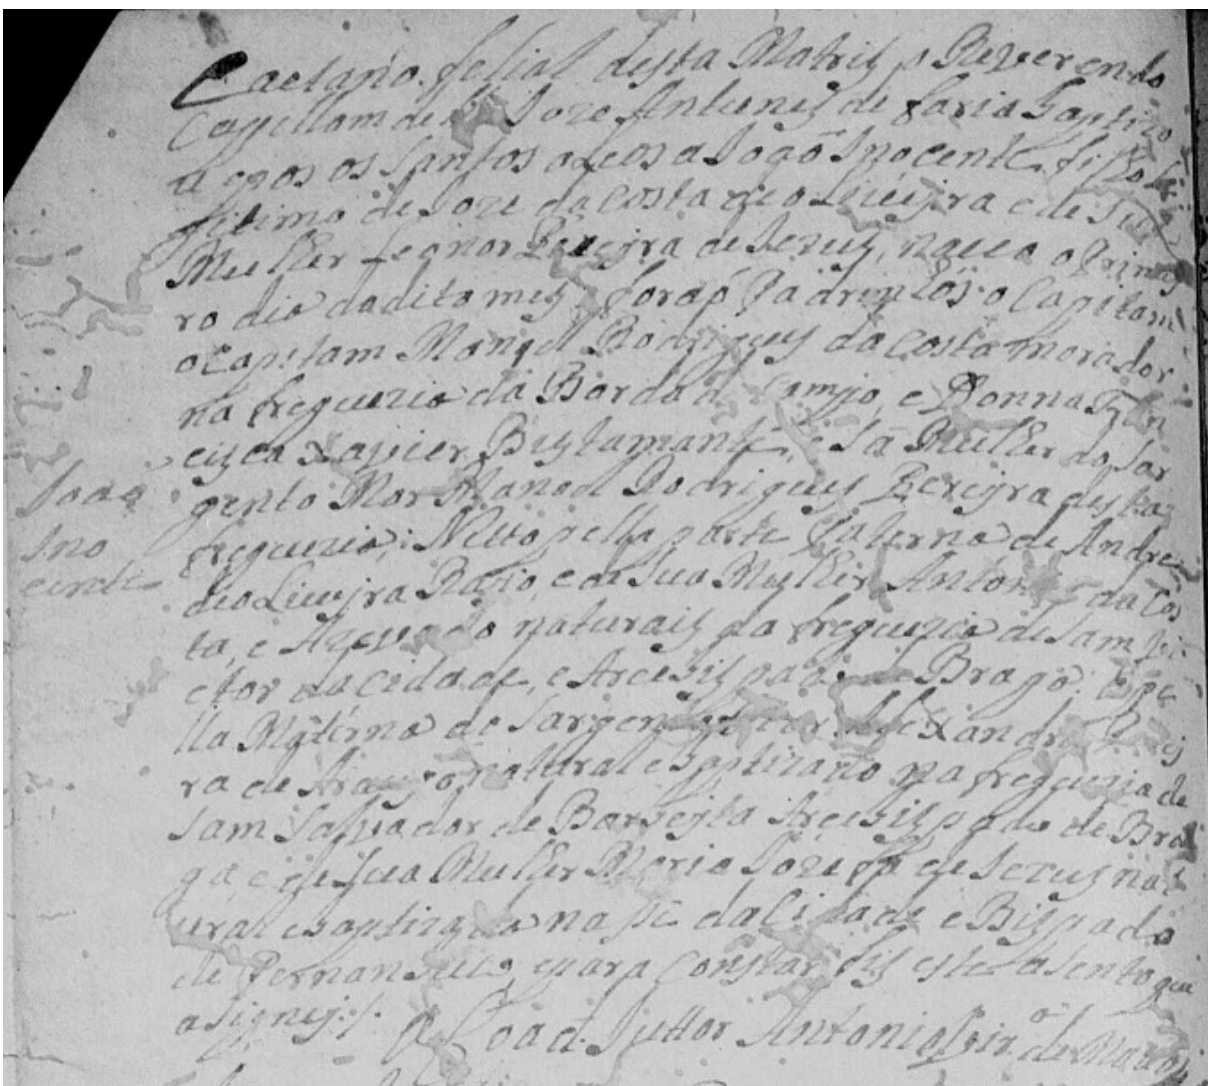 Caetano. felial desta Matris o Reverendo
Cappellam de Joze Antunes de Faria baptizo
e pos os Santos oleos a Joaõ Inocente filho le
gitimo de Joze da Costa de oLiveyra e de Sua
Mulher Leonor Pereyra de Jezus, naceo o Primey
ro dia do dito mes foraõ Padrinhos o Capitam
o Capitam Manoel Rodrigues da Costa morador
na freguezia da Borda do Campo, e Donna Fran
cisca Xavier Bustamante, Mulher do Sar
gento Mor Manoel Rodrigues Pereyra desta
freguezia; Netto pella parte Paterna de Andre
de oLiveyra e de Sua Mulher Antonia da Cos
ta, e Azevedo naturais da freguezia de Sam Vi
ctor da Cidade, e Arcebispado de Braga. E pe
lla Materna de Sargento mor Alexandre Perey
ra de Araujo, natural e baptizado na freguezia de
Sam Salvador de Arcebispado de Bra
ga e de Sua Mulher Maria Jozefa de Jezus nat
ural e baptizada na sé da Cidade e Bispado
de Pernambuco, e para Constar fis este asento que
asigney./.
O Coad. Juttor Antonio
Joaõ
Ino
cente